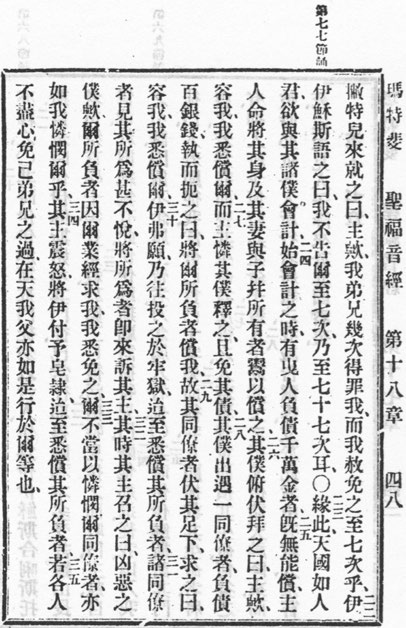 第七七節誦
瑪特斐 聖福音經 第十八章 四八
撇特兒來就之曰主歟我弟兄幾次得罪我而我赦免之至七次乎伊
伊穌斯語之曰我不告爾至七次乃至七十七次耳〇緣此天國如人
君欲與其諸僕會計始會計之時有曳人負債千萬金者旣無能償主
人命將其身及其妻與子幷所有者鬻以償之其僕俯伏拜之曰主歟
容我我悉償爾而主憐其僕釋之且免其債其僕出遇一同僚者負債
百銀錢執而扼之曰將爾所負者償我故其同僚者伏其足下求之曰
容我我悉償爾伊弗願乃往投之於牢獄這至悉償其所負者諸同僚
者見其所爲甚不悅將所爲者卽來訴其主其時其主召之曰凶惡之
僕歟爾所負者因爾業經求我我悉免之爾不當以憐憫爾同僚者亦
如我憐憫爾乎其主震怒將伊付予皂隸這至悉償其所負者若各人
不盡心免己弟兄之過在天我父亦如是行於爾等也
二二
二三
二四
二五
二六
二七
二八
二九
三十
三一
三二
三三
三四
三五